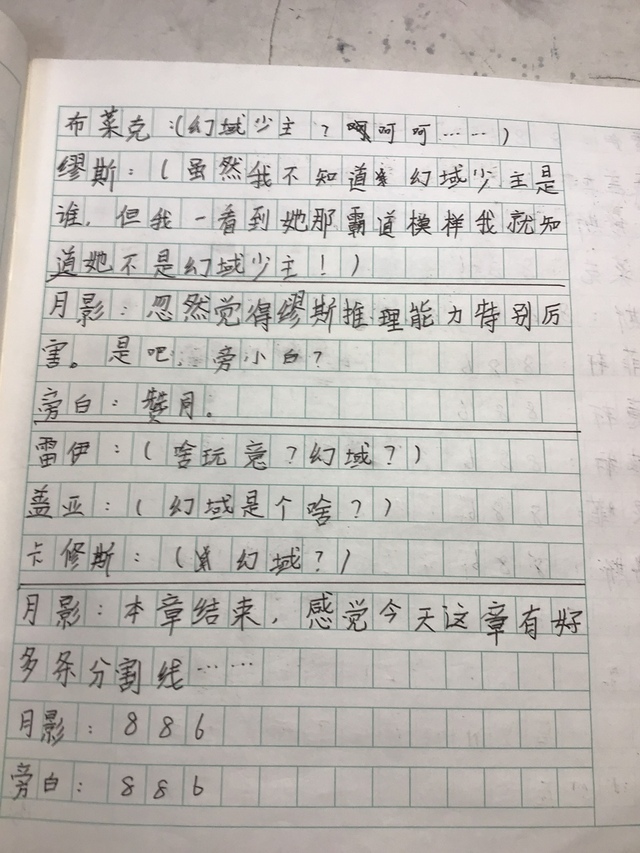 布莱克:(幻域少主?呵呵……)
缪斯:(虽然我不知道幻域少主是
谁,但我一看到她那霸道模样我就知
道她不是幻域少主!)
月影:忽然觉得缪斯推理能力特别厉
害。是吧,旁小白?
旁白:赞同。
雷伊:(啥玩意?幻域?)
盖亚:(幻域是个啥?)
卡修斯:(幻域?)
月影:本章结束,感觉今天这章有好
多条分割线……
月影:886
旁白:886